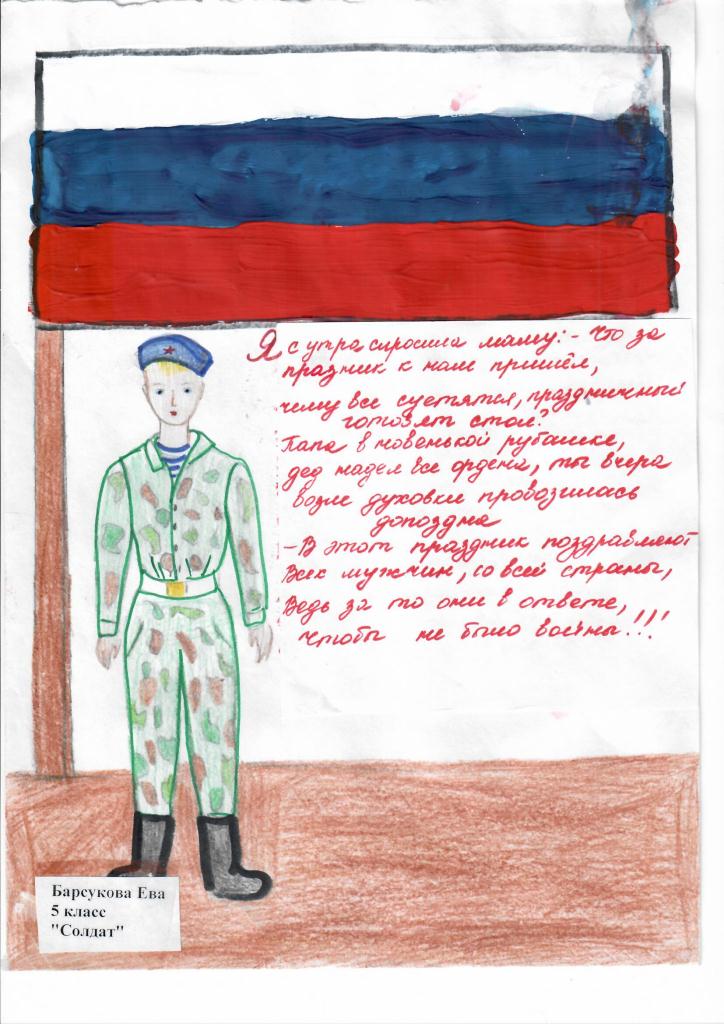 Я с утра спросила маму: - Что за
праздник к нам пришёл,
чему все суетятся, праздничный
готовят стол?
Папа в новенькой рубашке,
дед надел все ордена, ты вчера
возле духовки провозилась
допоздна
- В этот праздник поздравляют
Всех мужчин, со всей страны,
Ведь за то они в ответе,
Чтобы не было войны!!!
Барсукова Ева
5 класс
"Солдат"